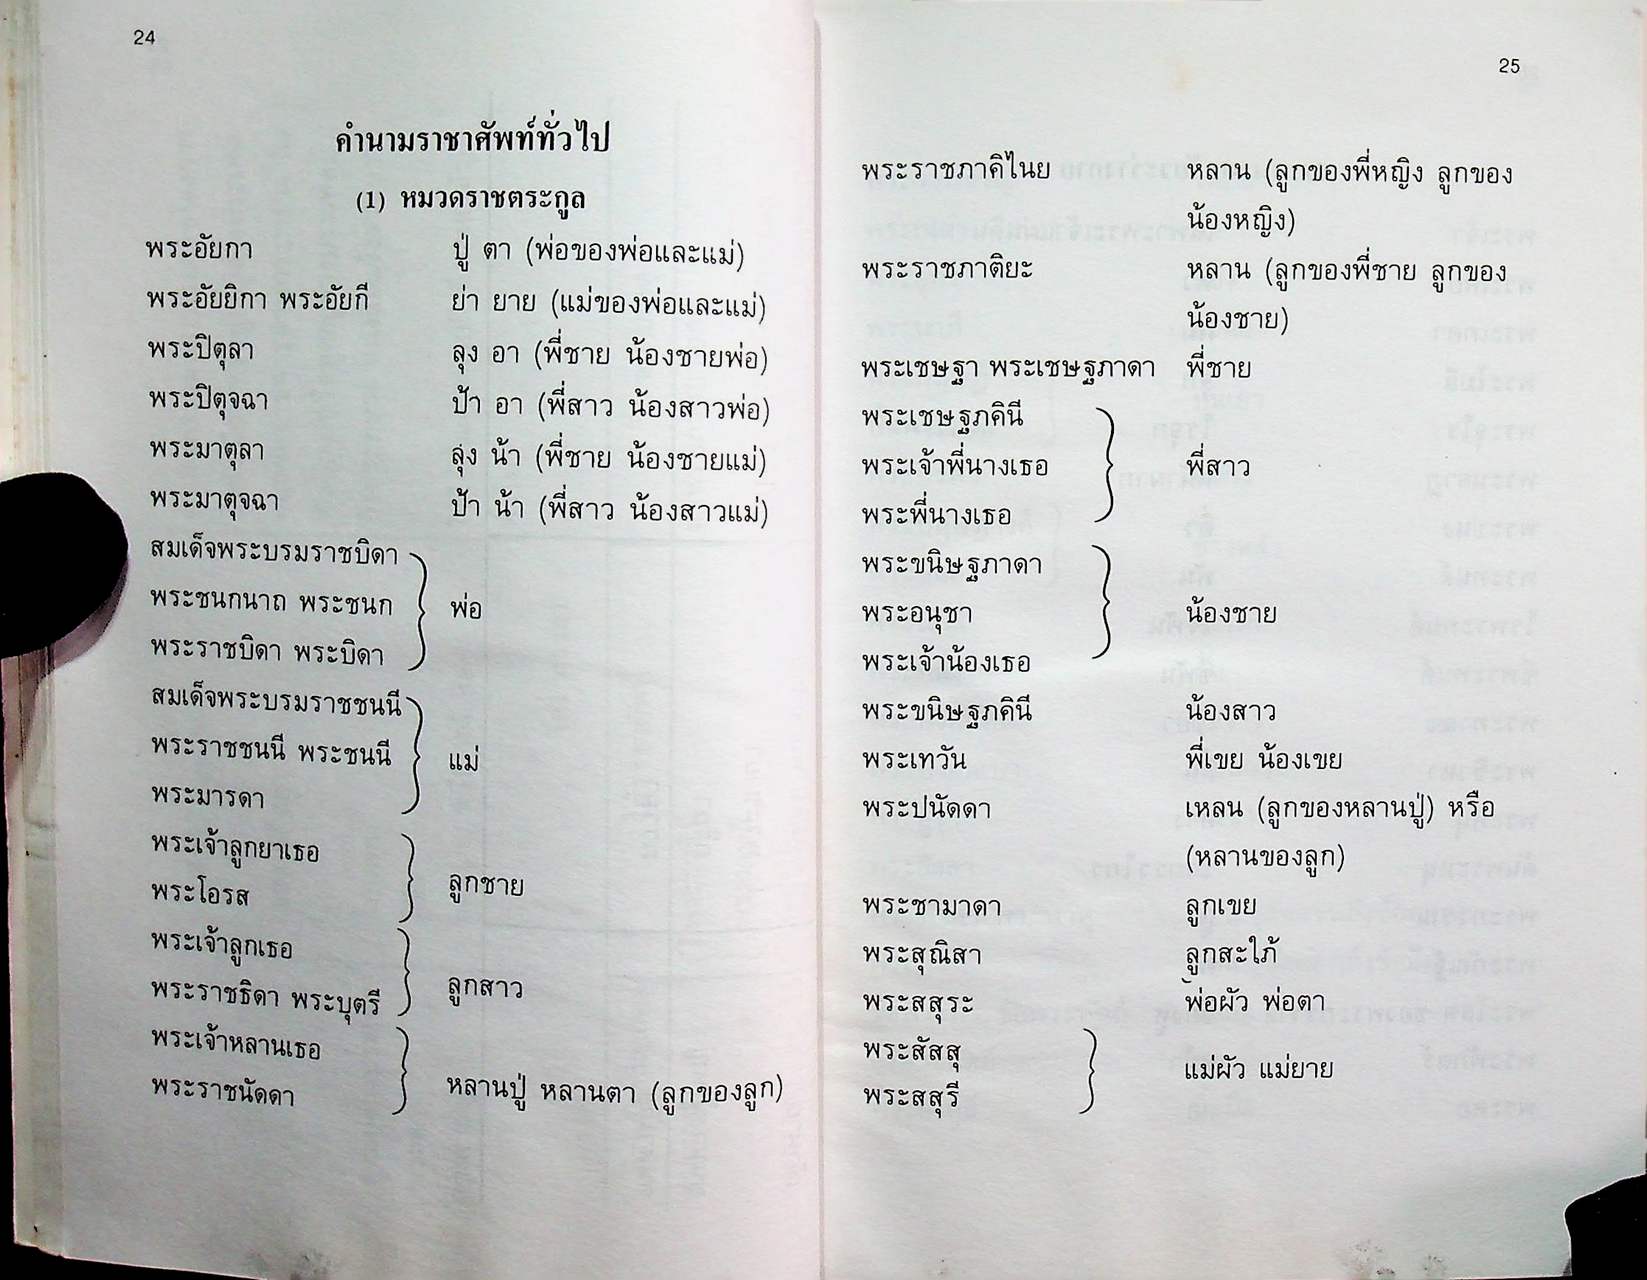 24
คำนามราชาศัพท์ทั่วไป
(1) หมวดราชตระกูล
พระอัยกา ปู่ ตา (พ่อของพ่อและแม่)
พระอัยยิกา พระอัยกี ย่า ยาย (แม่ของพ่อและแม่)
พระปิตุลา ลุง อา (พี่ชาย น้องชายพ่อ)
พระปิตุจฉา ป้า อา (พี่สาว น้องสาวพ่อ)
พระมาตุลา ลุ่ง น้า (พี่ชาย น้องชายแม่)
พระมาตุจฉา ป้า น้า (พี่สาว น้องสาวแม่)
สมเด็จพระบรมราชบิดา
พระชนกนาถ พระชนก พ่อ
พระราชบิดา พระบิดา
สมเด็จพระบรมราชชนนี
พระราชชนนี พระชนนี แม่
พระมารดา
พระเจ้าลูกยาเธอ
ลูกชาย
พระโอรส
พระเจ้าลูกเธอ
ลูกสาว
พระราชธิดา พระบุตรี
พระเจ้าหลานเธอ
พระราชนัดดา หลานปู่ หลานตา (ลูกของลูก)
25
พระราชภาคิไนย หลาน (ลูกของพี่หญิง ลูกของ
น้องหญิง)
พระราชภาติยะ หลาน (ลูกของพี่ชาย ลูกของ
น้องชาย)
พระเชษฐา พระเชษฐภาดา พี่ชาย
พระเชษฐภคินี
พระเจ้าพี่นางเธอ พี่สาว
พระพี่นางเธอ
พระขนิษฐภาดา
พระอนุชา น้องชาย
พระเจ้าน้องเธอ
พระขนิษฐภคินี น้องสาว
พระเทวัน พี่เขย น้องเขย
พระปนัดดา เหลน (ลูกของหลานปู่) หรือ
(หลานของลูก)
พระชามาดา ลูกเขย
พระสุณิสา ลูกสะใภ้
พระสสุระ พ่อผัว พ่อตา
พระสัสสุ
แม่ผัว แม่ยาย
พระสสุรี